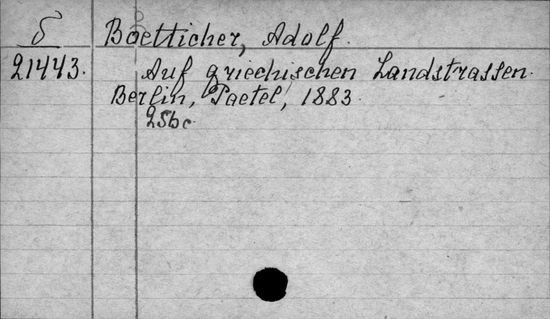 δ Boetticher, Adolf.
21443. Auf griechischen Landstrassen.
Berlin, Paetel, 1883.
256c.